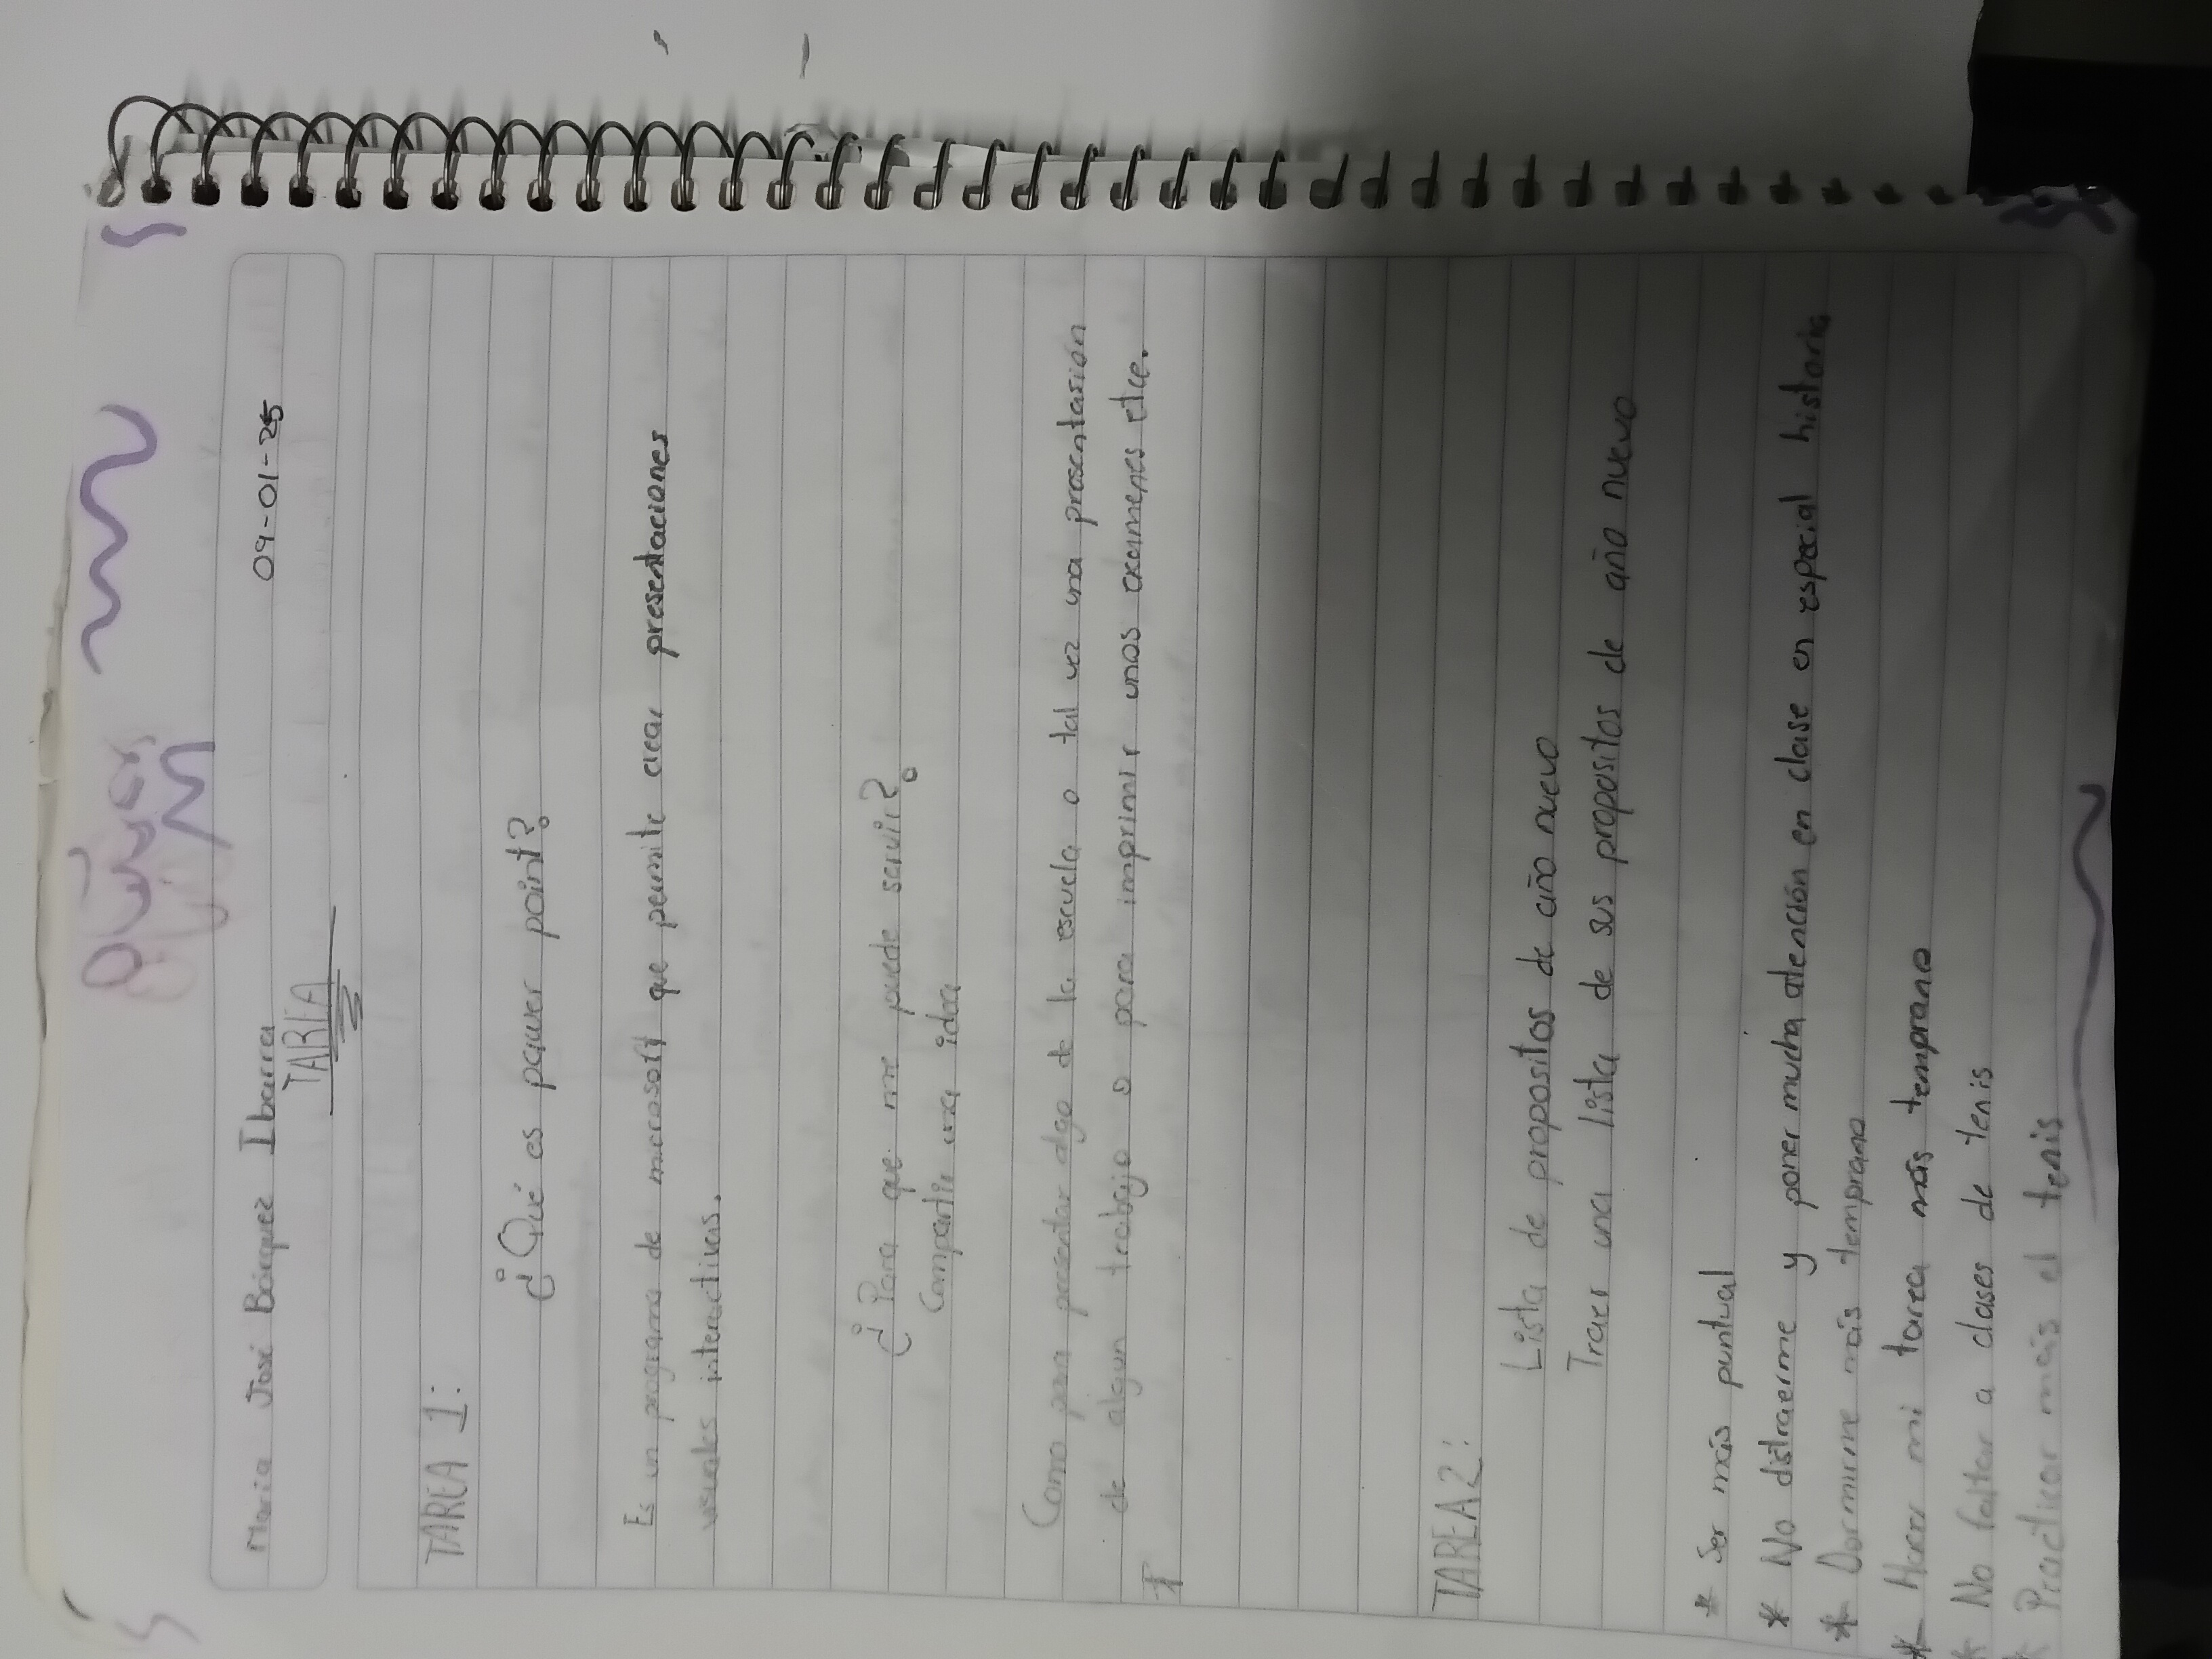 Maria José Bórquez Ibarra 09-01-25
TAREA
TAREA 1:
¿Qué es pawer point?
Es un programa de microsoft que permite crear presentaciones
visuales interactivas.
¿Para que me puede servir?
Compartir una idea
Como para presentar algo de la escuela o tal vez una presentasión
de algun trabajo o para imprimir unos examenes etce.
TAREA 2:
Lista de propositos de año nuevo
Traer una lista de sus propositos de año nuevo
* Ser más puntual
* No distraerme y poner mucha atención en clase en especial historia
* Dormirme más temprano
* Hacer mi tarea más temprano
* No faltar a clases de tenis
* Practicar más el tenis